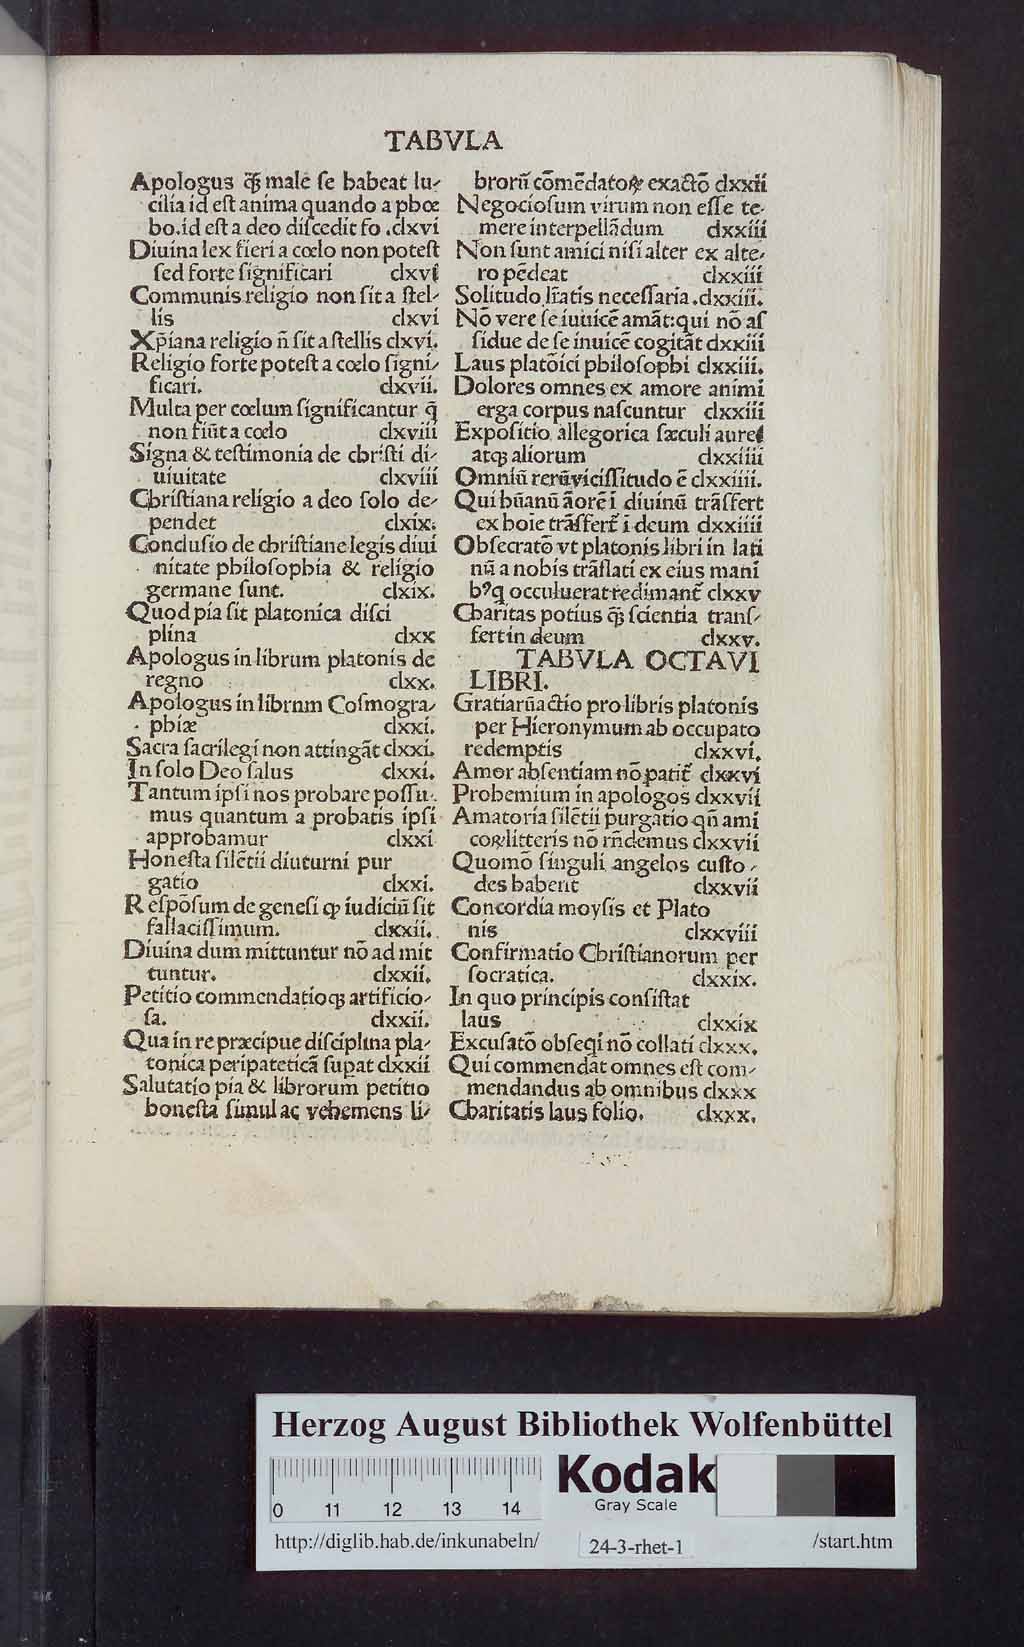 TABVLA
Apologus q̃ꝫ male se habeat lu-
cilia id est anima quando a phœ
bo.id est a deo discedit fo .clxvi
Diuina lex fieri a cœlo non potest
sed forte significari clxvi
Communis religio non sit a stel-
lis clxvi
Xp̄iana religio n̄ sit a stellis clxvi.
Religio forte potest a cœlo signi-
ficari. clxvii.
Multa per cœlum significantur q̄
non fiūt a cœlo clxviii
Signa & testimonia de christi di-
uiuitate clxviii
Christiana religio a deo solo de-
pendet clxix.
Conclusio de christiane legis diui
nitate philosophia & religio
germane sunt. clxix.
Quod pia sit platonica disci
plina clxx
Apologus in librum platonis de
regno clxx.
Apologus in librum Cosmogra-
phiæ clxxi.
Sacra sacrilegi non attingāt clxxi.
In solo Deo salus clxxi.
Tantum ipsi nos probare possu-
mus quantum a probatis ipsi
approbamur clxxi
Honesta silētii diuturni pur
gatio clxxi.
Respōsum de genesi ꝙ iudiciū sit
fallacissimum. clxxii.
Diuina dum mittuntur nō ad mit
tuntur. clxxii.
Petitio commendatioqꝫ artificio-
sa. clxxii.
Qua in re præcipue disciplina pla-
tonica peripateticā supat clxxii
Salutatio pia & librorum petitio
honesta simul ac vehemens li-
brorū cōmēdatoꝝ exactō clxxii
Negociosum virum non esse te-
mere interpellādum clxxiii
Non sunt amici nisi alter ex alte-
ro pēdeat clxxiii
Solitudo lr̄atis necessaria .clxxiii.
Nō vere se iuuicē amāt:qui nō as
sidue de se inuicē cogitāt clxxiii
Laus platōici philosophi clxxiii.
Dolores omnes ex amore animi
erga corpus nascuntur clxxiii
Expositio allegorica sæculi aurei
atqꝫ aliorum clxxiiii
Omniū rerū vicissitudo ē clxxiiii.
Qui hūanū āorē ī diuinū trāsfert
ex hoīe trāsfert̄ ī deum clxxiiii
Obsecratō vt platonis libri in lati
nū a nobis trāslati ex eius mani
bꝰ q occuluerat redimant̄ clxxv
Charitas potius q̃ꝫ scientia trans-
fert in deum clxxv.
TABVLA OCTAVI
LIBRI.
Gratiarū actio pro libris platonis
per Hieronymum ab occupato
redemptis clxxvi.
Amor absentiam nō patit̄ clxxvi
Prohemium in apologos clxxvii
Amatoria silētii purgatio qn̄ ami
coꝝ litteris nō rn̄demus clxxvii
Quomō singuli angelos custo-
des habent clxxvii
Concordia moysis et Plato
nis clxxviii
Confirmatio Christianorum per
socratica. clxxix.
In quo principis consistat
laus clxxix
Excusatō obseqi nō collati clxxx.
Qui commendat omnes est com-
mendandus ab omnibus clxxx
Charitatis laus folio. clxxx.
Herzog August Bibliothek Wolfenbüttel
Kodak
Gray Scale
0 11 12 13 14
http://diglib.hab.de/inkunabeln/ 24-3-rhet-1 /start.htm